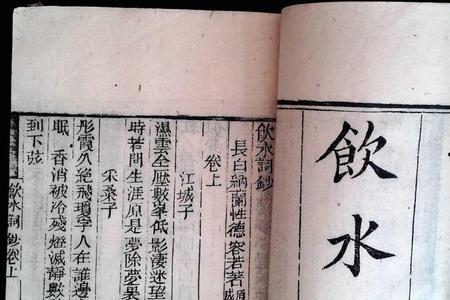 飲水
飲水詞鈔
長白納蘭性德容若著
卷上
江城子
濕雲全壓數峯低影淒迷望
時若問生涯原是夢除夢裏
采桑子
彤霞久絶飛瓊字人在誰邊
眠 香消被冷殘燈滅靜數
到下弦
飲水詞鈔卷上